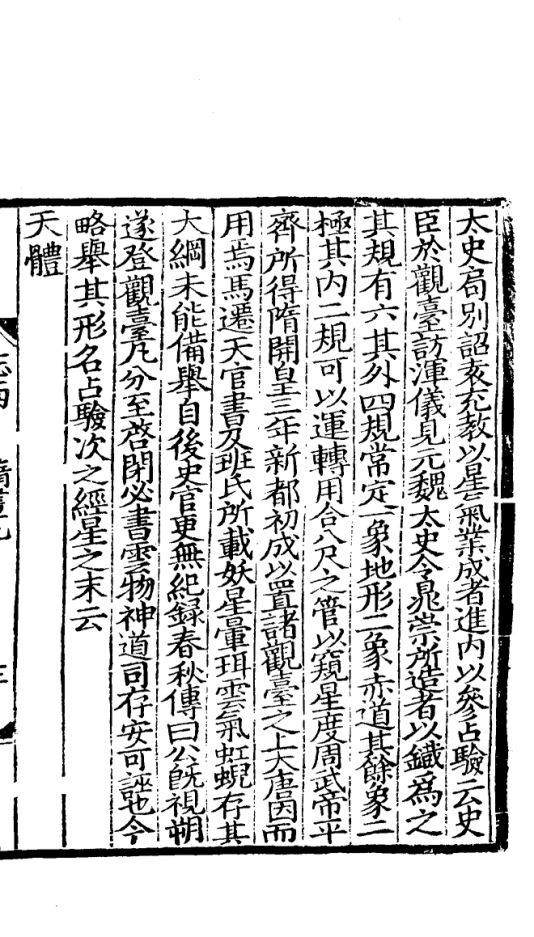 太史局别詔袁充教以星氣業成者進內以參占驗云史
臣於觀臺訪渾儀見元魏太史令晁崇所造者以鐵爲之
其規有六其外四規常定一象地形二象赤道其餘象二
極其內二規可以運轉用合八尺之管以窺星度周武帝平
齊所得隋開皇三年新都初成以置諸觀臺之上大唐因而
用焉馬遷天官書及班氏所載妖星暈珥雲氣虹蜺存其
大綱未能備舉自後史官更無紀録春秋傳曰公旣視朔
遂登觀臺凡分至啓閉必書雲物神道司存安可誣也今
略舉其形名占驗次之經星之末云
天體